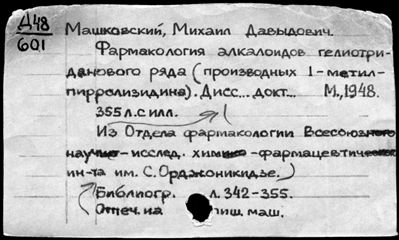 Д48
601
Машковский, Михаил Давыдович.
Фармакология алкалоидов гелиотри-
данового ряда (производных 1-метил-
пирролизидина). Дисс... докт... М., 1948.
355 л. с илл.
Из Отдела фармакологии Всесоюзного
научно-исслед. химико-фармацевтического
ин-та им. С. Орджоникидзе.)
Библиогр. л. 342-355.
Отпеч. на пиш. маш.